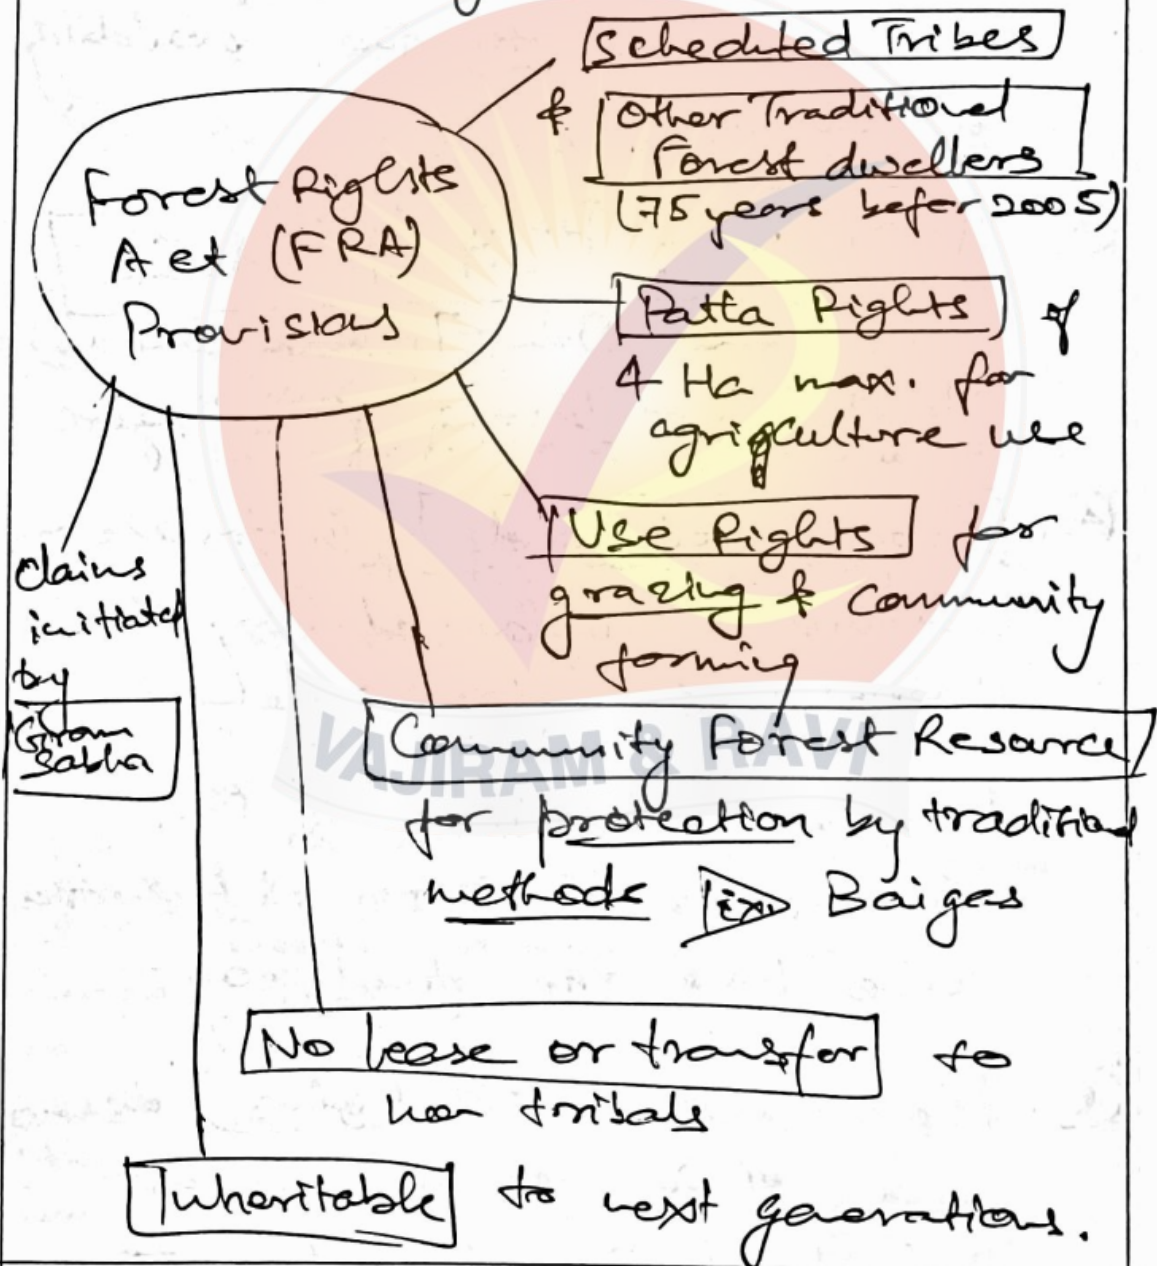 Forest Rights
Act (FRA)
Provisions
Scheduled Tribes
& Other Traditional
Forest dwellers
(75 years befor 2005)
Patta Rights of
4 Ha max. for
agriculture use
Use Rights for
grazing & Community
forming
Community Forest Resource
for protection by traditional
methods Ex. Baigas
No lease or transfer to
non tribals
Inheritable to next generations.
claims
initiated
by
Gram
Sabha
VAJIRAM & RAVI